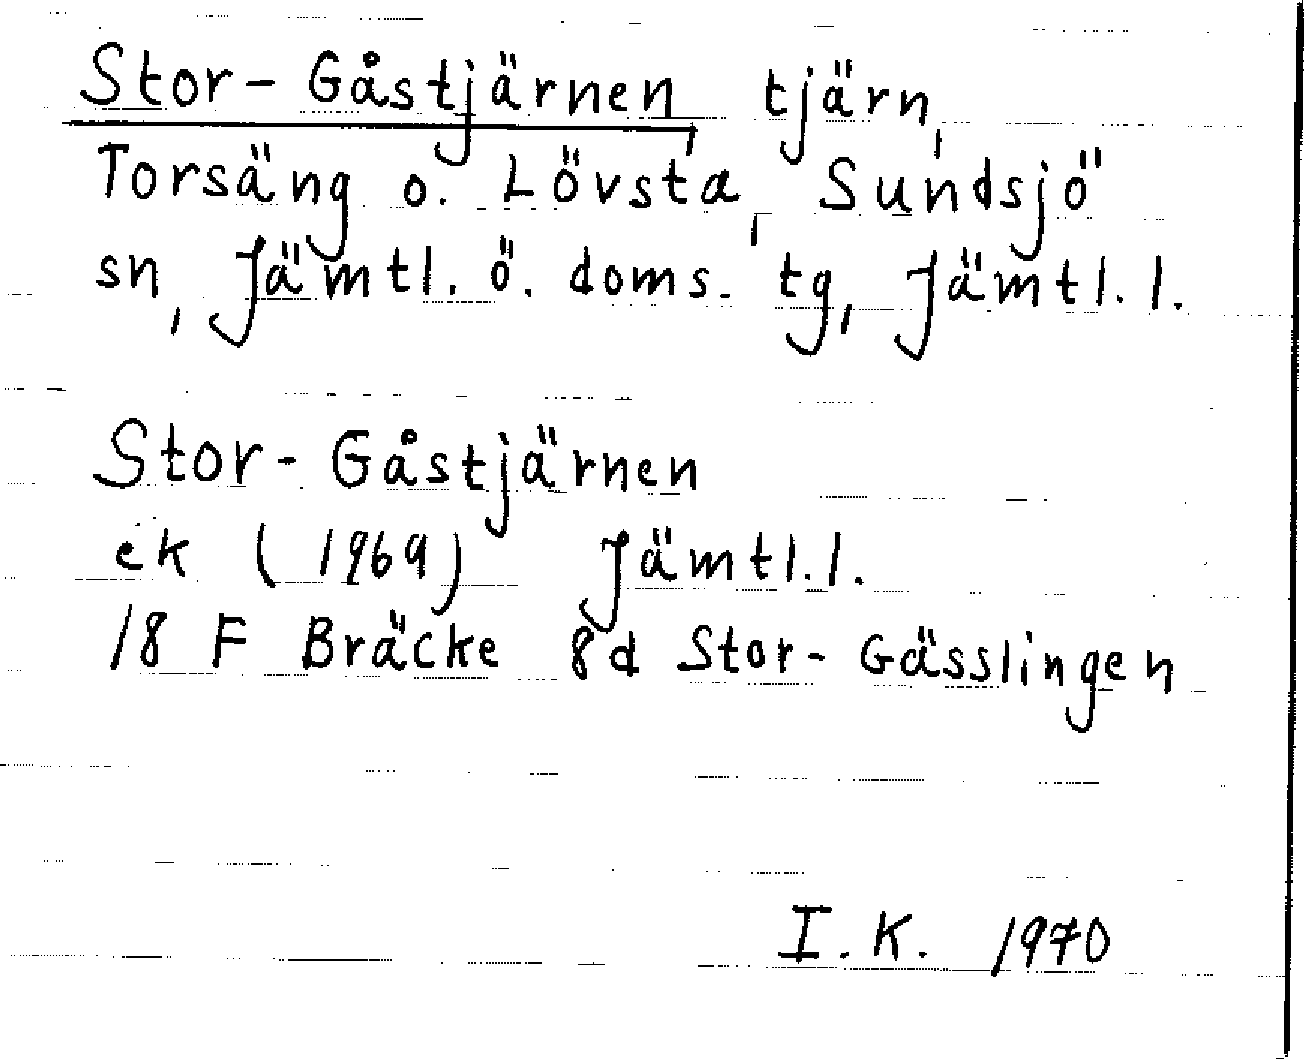 Stor-Gåstjärnen, tjärn,
Torsäng o. Lövsta, Sundsjö
sn, Jämtl. ö. doms. tg, Jämtl. l.
Stor-Gåstjärnen
ek (1969) Jämtl. l.
18 F Bräcke 8d Stor-Gässlingen
I. K. 1970